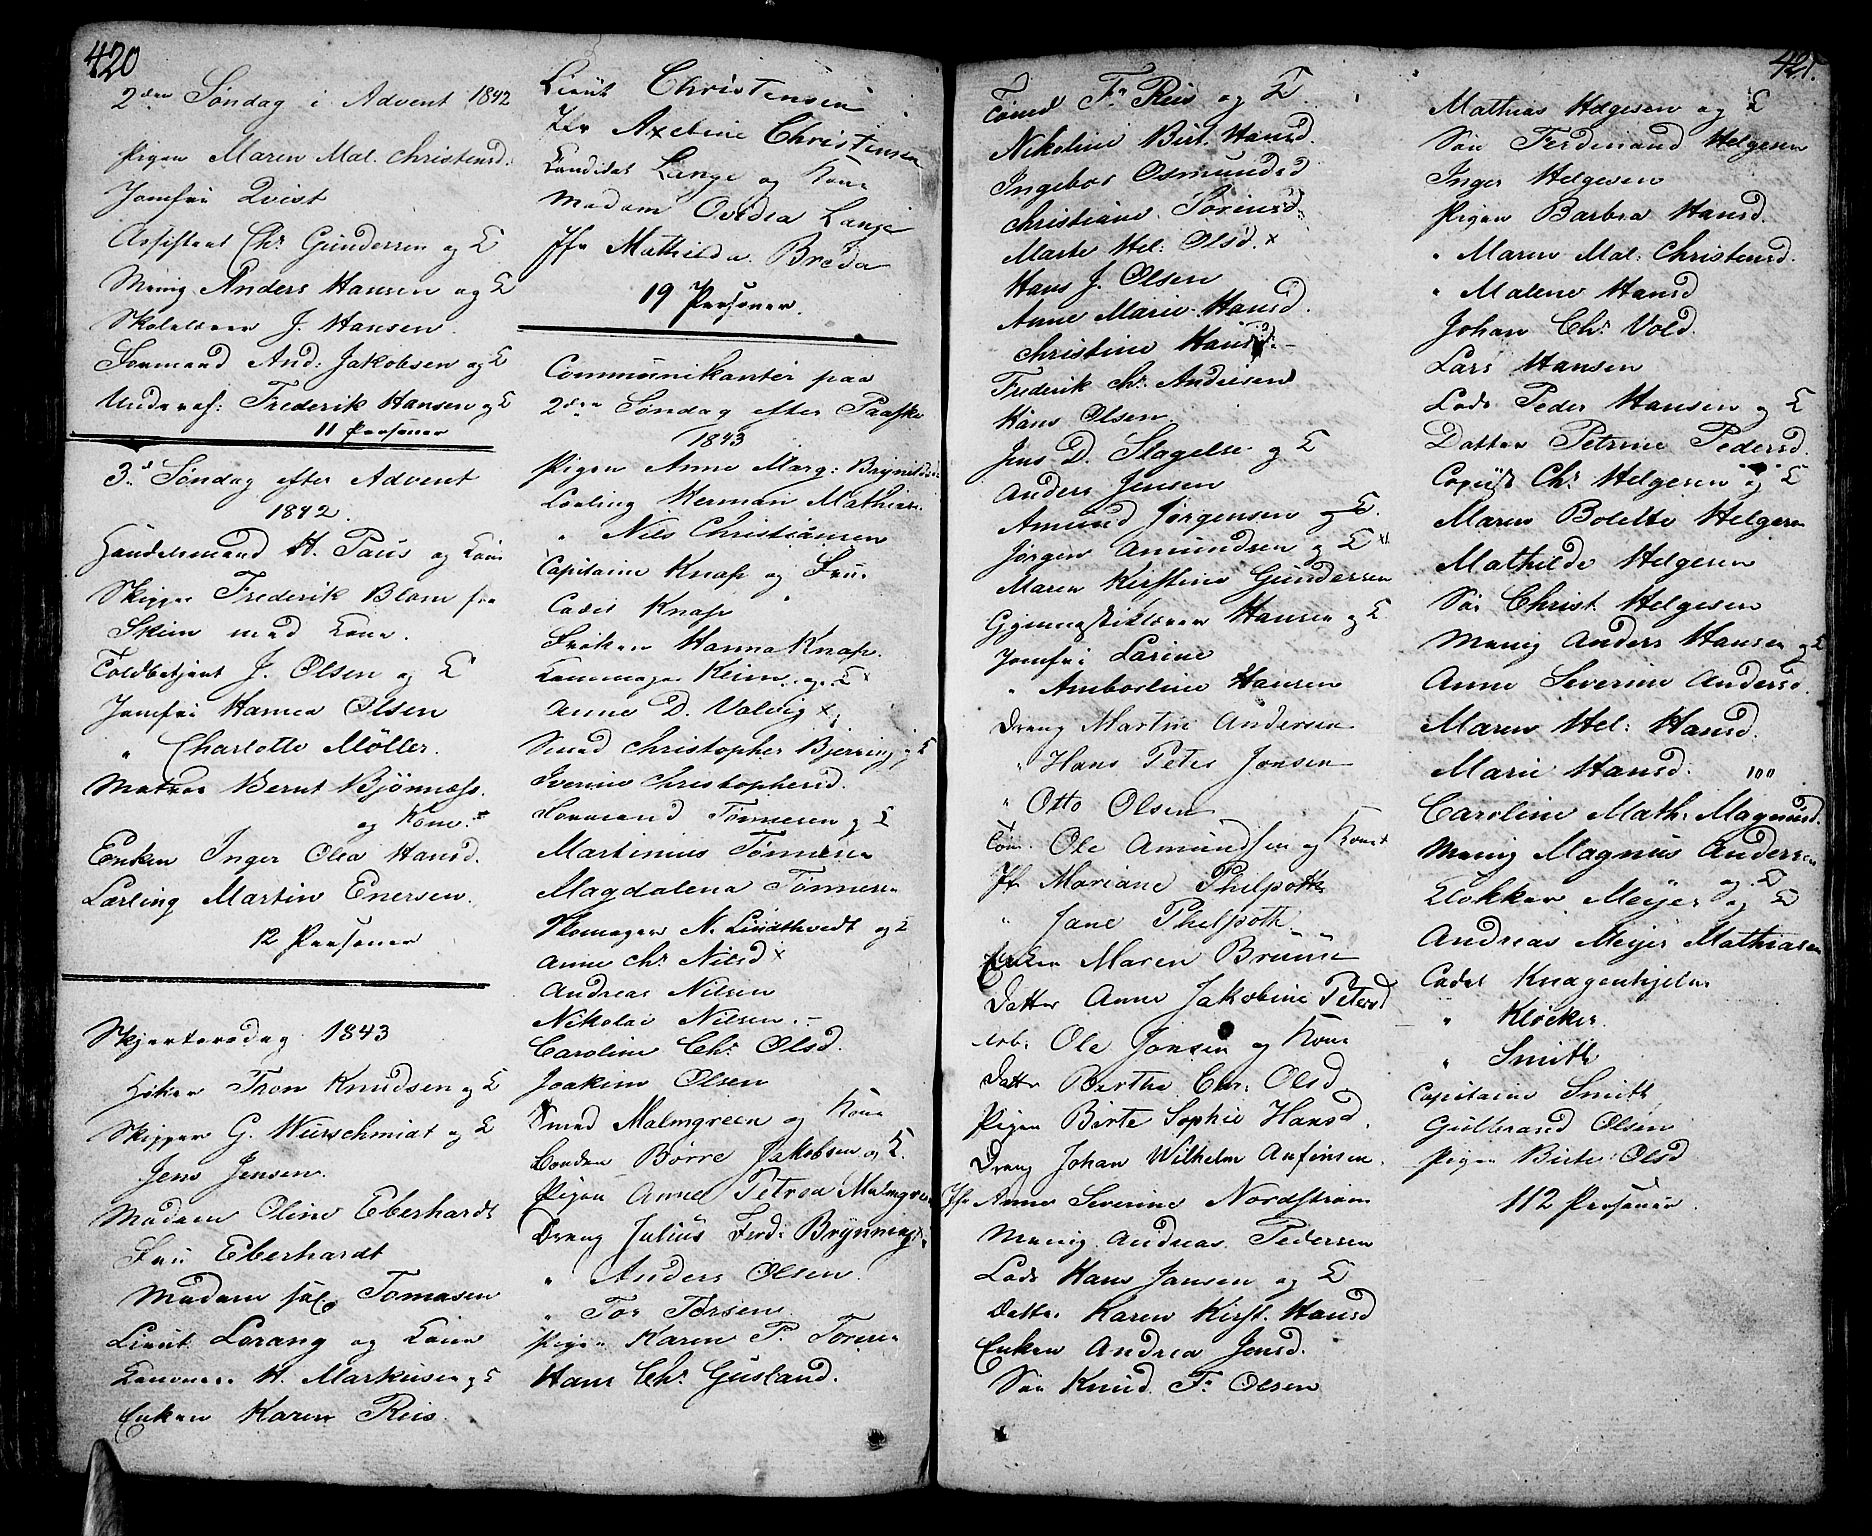 420
2den Søndag i Advent 1842
Pigen Maren Mal. Christensd.
Jomfru Qvist
Assistent Chr Gundersen og K
Menig Anders Hansen og K
Skolelærer J. Hansen
Formand And: Jakobsen og K
Underof: Frederik Hansen og K
11 Personer
3d Søndag efter Advent
1842.
Handelsmand H. Paus og Kone
Skipper Frederik Blom fra
Skien med Kone.
Toldbetjent J. Olsen og K
Jomfru Hanna Olsen
" Charlotte Möller.
Matros Bernt Bjönnæss.
og Kone.
Enken Inger Olea Hansd.
Lærling Martin Enersen.
12 Personer
Skjærtorsdag 1843
Høker Thon Knudsen og K
Skipper G. Wurschmidt og K
Jens Jensen.
Madam Oline Eberhardt
Fru Eberhardt
Madam sal. Tomasen
Lieut. Lorang og Kone
H. Markusen og K
Enken Karen Reis.
Lieut Christensen
Jfr Axeline Christensen
Kandidat Lange og Kone
Madam Ovidia Lange
Jfr Mathilda Breda
19 Personer.
Communikanter paa
2den Søndag efter Paaske
1843
Pigen Anne Marg: Brynildsd.
Lærling Herman Mathias.
" Nils Christiansen
Capitaine Knap og Frue
Cadet Knap "
Frøken Hanna Knap.
Keim og K x
Anne D. Valvig x
Smed Christopher Bjerring og K
Iverine Christophersd.
Formand Tønnesen og K
Martinius Tønnesen
Magdalena Tønnesen
Skomager N. Lindthvedt og K
Anne Chr. Nilsd x
Andreas Nilsen
Nikolai Nilsen.
Caroline Chr. Olsd.
Joakim Olsen
Smed Malmgreen og Kone
Bonden Börre Jakobsen og K.
Pigen Anne Petrea Malmgreen
Dreng Julius Ferd: Brynning
" Anders Olsen.
" Tor Torsen
Pigen Karen P. Toresen
Hans Chr. Gusland.
421.
Tømd Fr Reis og K.
Nikoline Birt. Hansd.
Ingebor Osmundsd
Christiane Torinsd.
Marte Hel: Olsd. x
Hans J. Olsen
Anne Marie Hansd.
Christine Hansd.
Frederik Chr. Andresen
Hans Olsen
Jens D. Slagelse og K
Anders Jensen
Amund Jørgensen og K.
Jørgen Amundsen og K
Maren Kirstine Gundersen
Gymnastiklærer Hansen og K.
Jomfru Larine
" Ambortine Hansen
Dreng Martin Andersen
" Hans Peter Jonsen
" Otto Olsen
Tøm. Ole Amundsen og Kone
Jfr Mariane Philpott
" Jane Philpott
Enken Maren Bruun
Datter Anne Jakobine Petersd
Arb. Ole Jonsen og Kone
Datter Berthe Chr: Olsd
Pigen Birte Sophie Hansd.
Dreng Johan Wilhelm Anfinsen.
Jfr Anne Severine Nordstrøm
Menig Andreas Pedersen
Lods Hans Jansen og K
Datter Karen Kirst. Hansd
Enken Andrea Jensd.
Søn Knud Fr Olsen
Mathias Helgesen og K
Søn Ferdinand Helgesen
Inger Helgesen
Pigen Barbra Hansd.
" Maren Mal: Christensd.
" Malene Hansd
Johan Chr. Vold.
Lars Hansen
Lods Peder Hansen og K
Datter Petrine Pedersd.
Copiist Chr. Helgesen og K
Maren Bolette Helgesen
Mathilde Helgesen
Søn Christ. Helgesen
Menig Anders Hansen og K
Anne Severine Andersd.
Maren Hel: Hansd.
Marie Hansd. 100
Caroline Math: Magnusd.
Menig Magnus Andersen
og K
Klokker Meyer og K
Andreas Meyer Mathiasen
Cadet Knagenhjelm
" Kløcker.
" Smith
Capitaine Smith
Gulbrand Olsen
Pigen Birte Olsd
112 Personer.